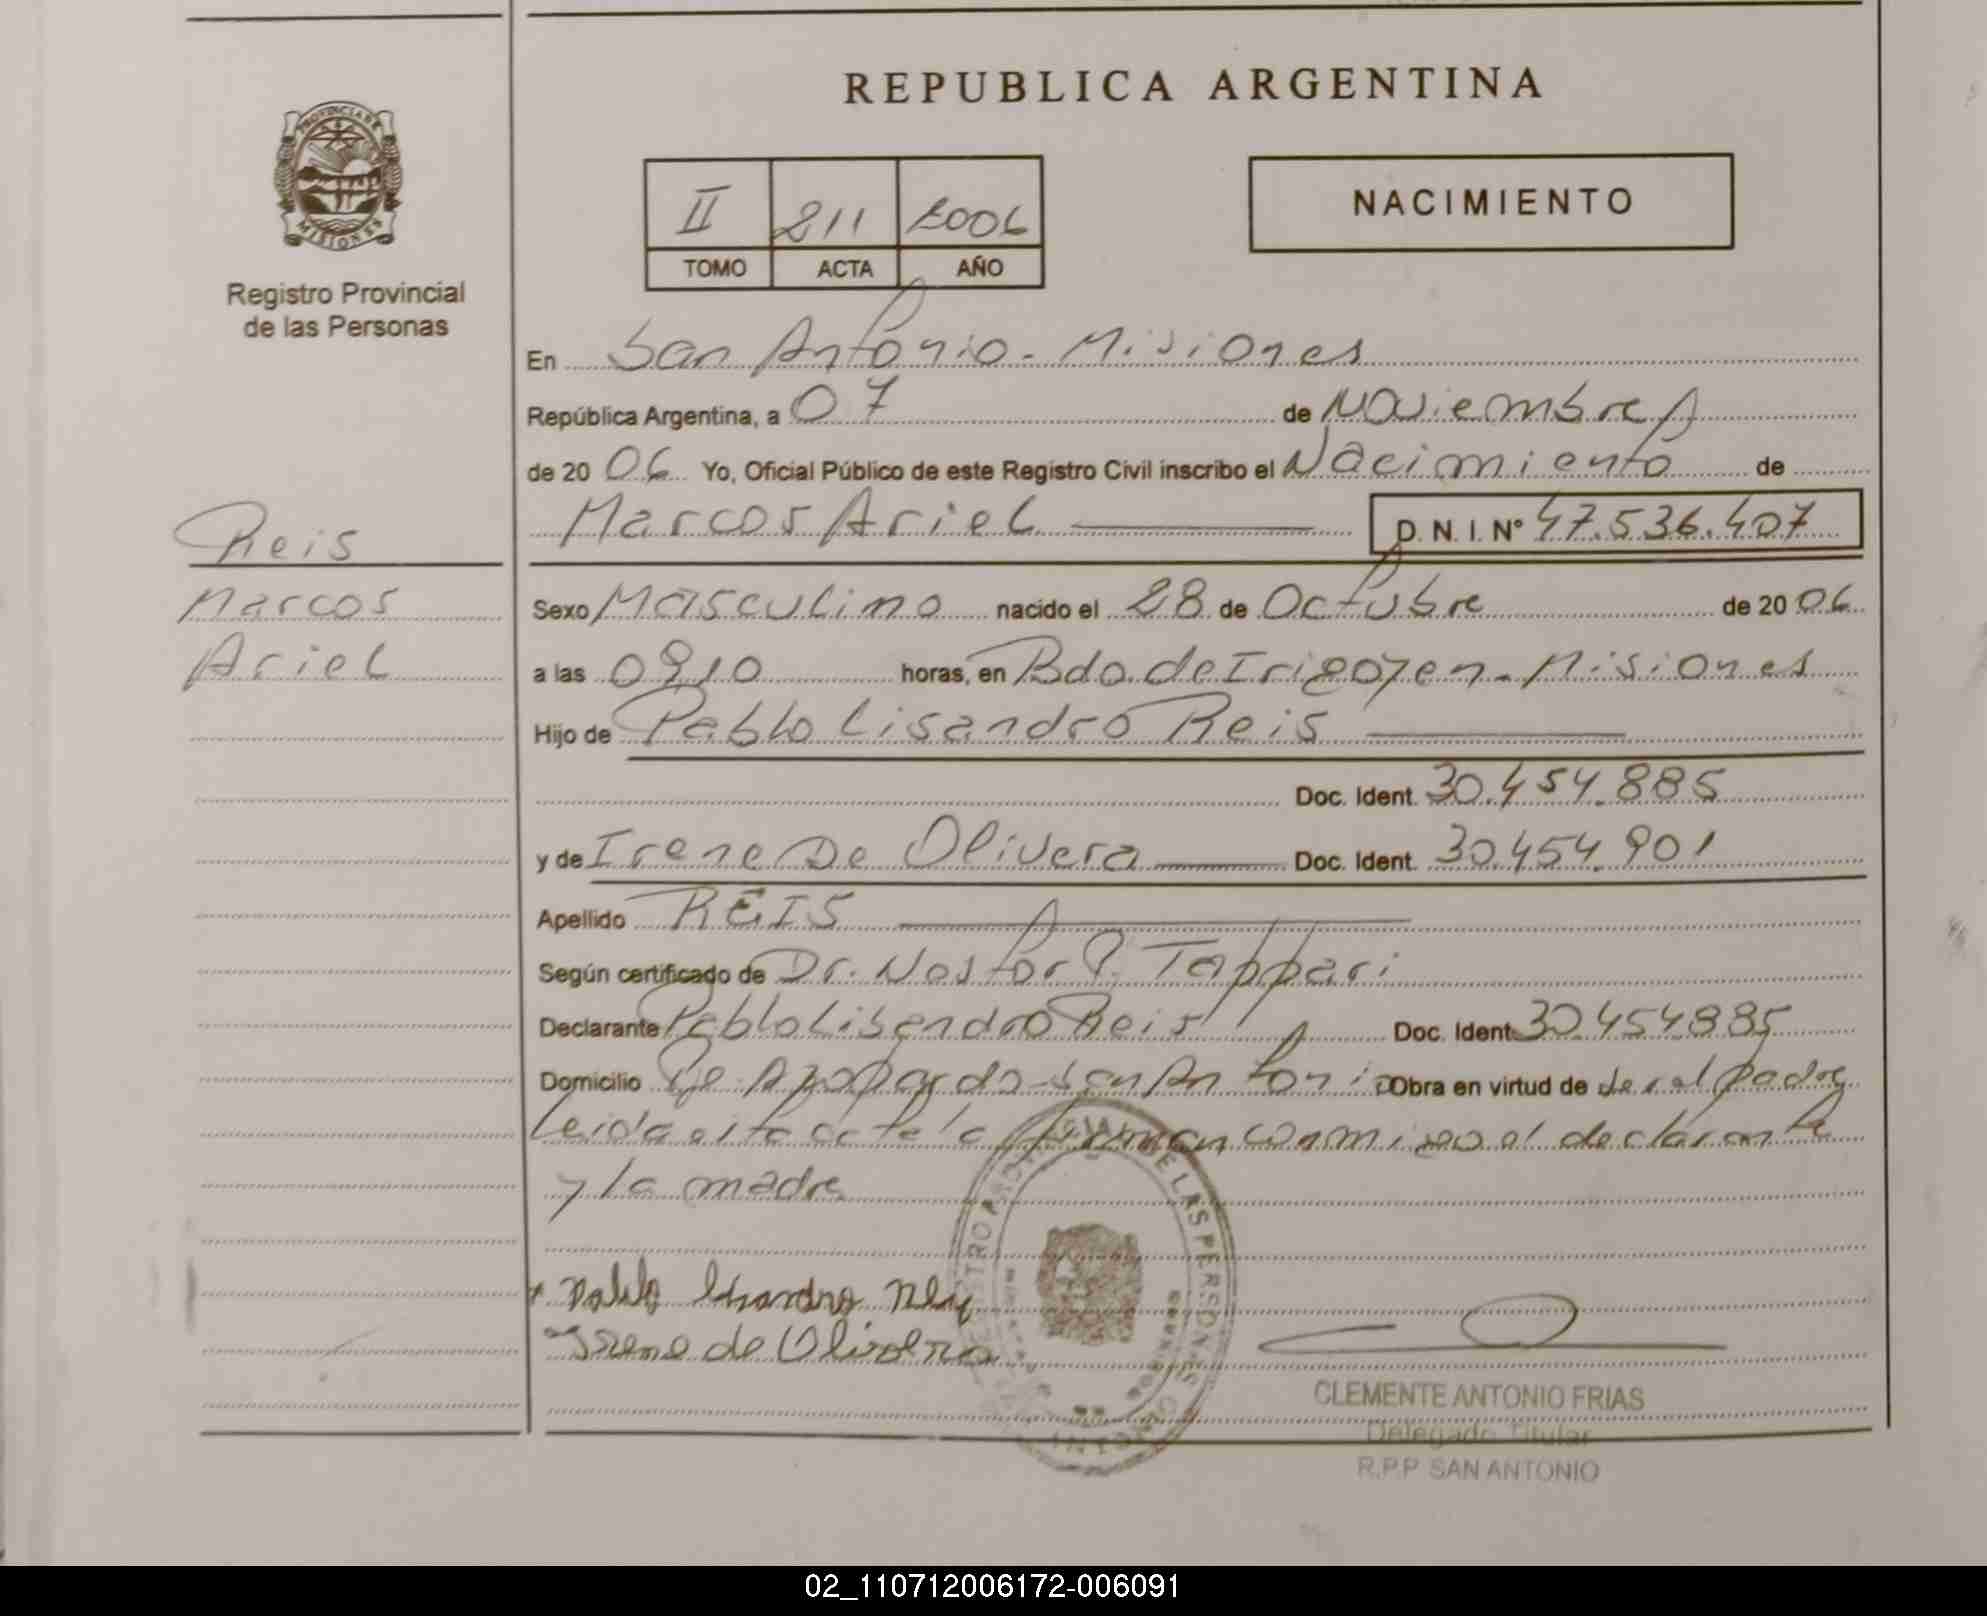 REPUBLICA ARGENTINA
PROVINCIA DE
MISIONES
Registro Provincial
de las Personas
II 211 2006
TOMO ACTA AÑO
NACIMIENTO
En San Antonio - Misiones
República Argentina, a 07 de Noviembre
de 20 06 Yo, Oficial Público de este Registro Civil inscribo el Nacimiento de
Marcos Ariel D. N. I. N° 47.536.407
Reis
Marcos
Ariel
Sexo Masculino nacido el 28 de Octubre de 20 06
a las 09,10 horas, en Bdo. de Irigoyen - Misiones
Hijo de Pablo Lisandro Reis
Doc. Ident. 30.454.885
y de Irene De Olivera Doc. Ident. 30.454.901
Apellido REIS
Según certificado de Dr. Nestor P. Tappari
Declarante Pablo Lisandro Reis Doc. Ident. 30.454885
Domicilio San Antonio Obra en virtud de
Leida esta acta la firman conmigo el declarante
y la madre
Pablo Lisandro
Irene de Olivera
CLEMENTE ANTONIO FRIAS
Delegado Titular
R.P.P SAN ANTONIO
02_110712006172-006091